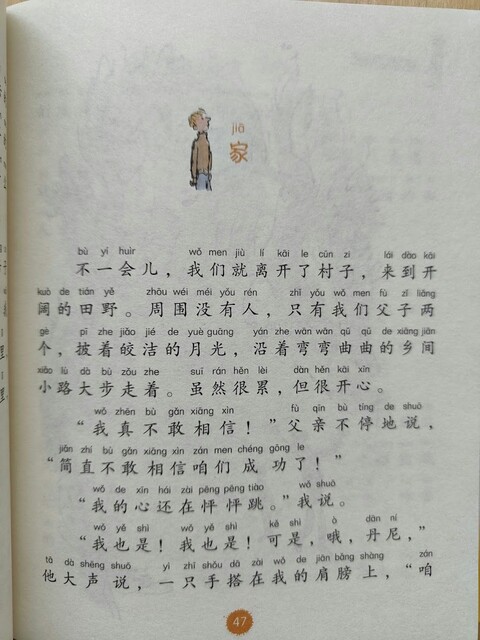 jiā
家
bù yī huìr wǒ men jiù lí kāi le cūn zi lái dào kāi
不一会儿，我们就离开了村子，来到开
kuò de tián yě zhōu wéi méi yǒu rén zhǐ yǒu wǒ men fù zǐ liǎng
阔的田野。周围没有人，只有我们父子两
gè pī zhe jiǎo jié de yuè guāng yán zhe wān wān qū qū de xiāng jiān
个，披着皎洁的月光，沿着弯弯曲曲的乡间
xiǎo lù dà bù zǒu zhe suī rán hěn lèi dàn hěn kāi xīn
小路大步走着。虽然很累，但很开心。
wǒ zhēn bù gǎn xiāng xìn fù qīn bù tíng de shuō
“我真不敢相信！”父亲不停地说，
jiǎn zhí bù gǎn xiāng xìn zán men chéng gōng le
“简直不敢相信咱们成功了！”
wǒ de xīn hái zài pēng pēng tiào wǒ shuō
“我的心还在怦怦跳。”我说。
wǒ yě shì wǒ yě shì kě shì ò dān ní
“我也是！我也是！可是，哦，丹尼，”
tā dà shēng shuō yì zhī shǒu dā zài wǒ de jiān bǎng shàng zán
他大声说，一只手搭在我的肩膀上，“咱
47